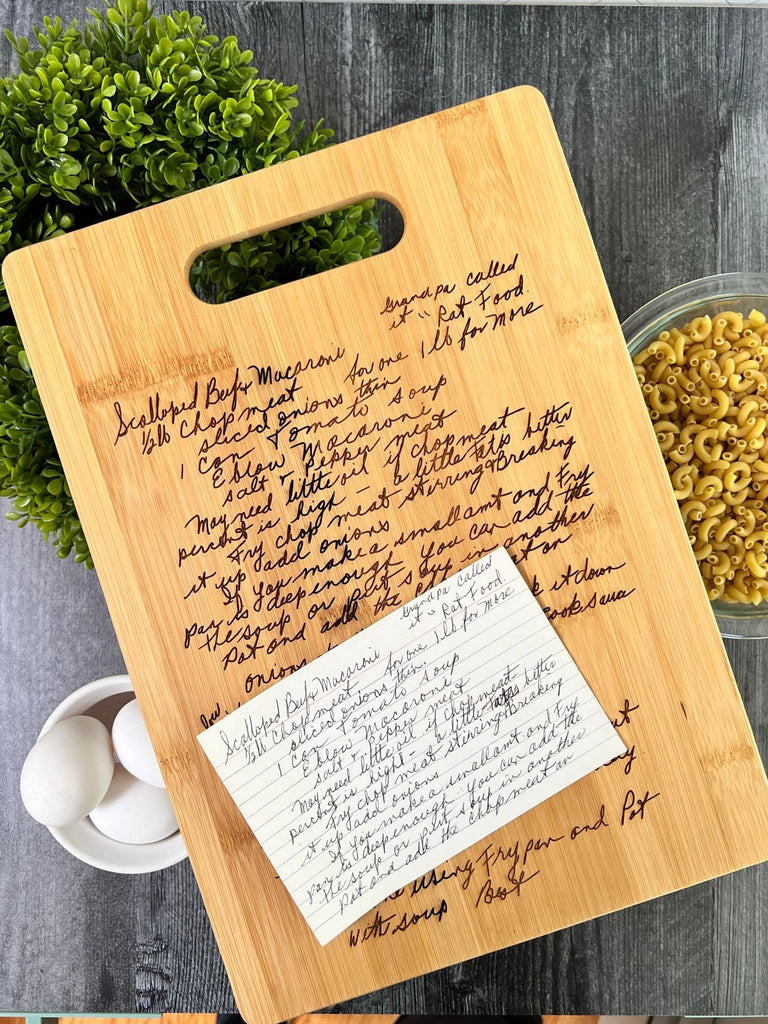 Grandpa called
it "Rat Food.
Scalloped Beef & Macaroni
1/2 lb Chop meat for one 1 lb for More
sliced onions thin
1 can Tomato soup
Eblow Macaroni
salt & Pepper meat
May need little oil if chop meat
percent is high - a little Fat is better
Fry chop meat stirring & Breaking
it up add onions
If you make a small amt and Fry
pan is deep enough you can add the
the soup or put soup in another
Pot and add the chop meat on
onions
it down
Cook sauce
using Fry pan and Pot
with soup
Grandpa called
it "Rat Food.
Scalloped Beef & Macaroni
1/2 lb Chop meat for one 1 lb for More
sliced onions thin.
1 can Tomato soup
Eblow Macaroni
salt & Pepper meat
May need little oil if chop meat
percent is hight - a little Fat is better
Fry chop meat stirring & Breaking
it up add onions
If you make a small amt and Fry
pan is deep enough you can add the
the soup or put soup in another
Pot and add the chop meat on